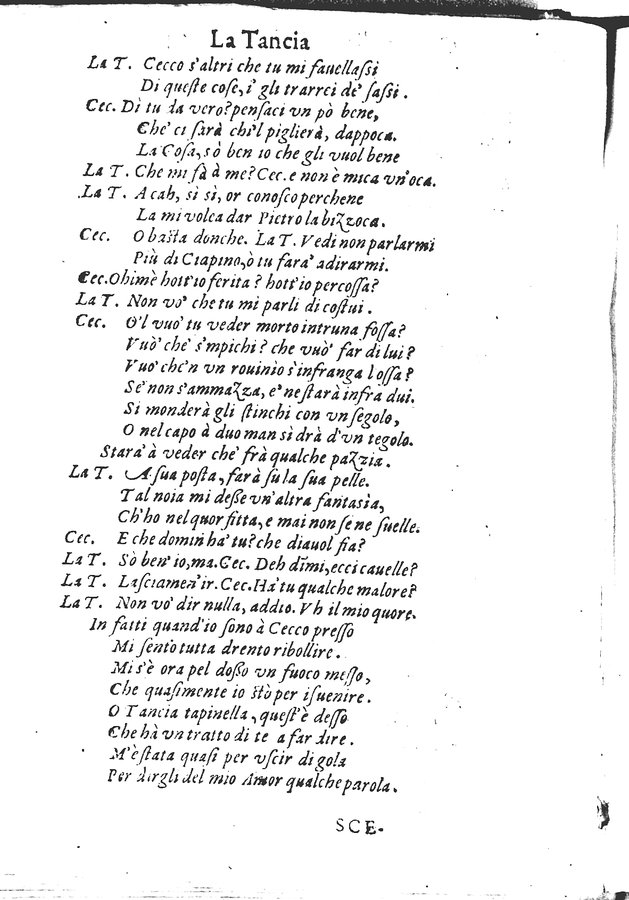 La Tancia
La T. Cecco s'altri che tu mi fauellaſſi
Di queſte coſe, i' gli trarrei de' ſaſſi.
Cec. Di tu da vero? penſaci vn pò bene,
Che' ci ſarà chi'l piglierà, dappoca.
La Coſa, sò ben io che gli vuol bene
La T. Che mi fà à me? Cec. e non è mica vn'oca.
La T. A cah, sì sì, or conoſco perchene
La mi volea dar Pietro la bizzoca.
Cec. O baſta donche. La T. Vedi non parlarmi
Più di Ciapino, ò tu fara' adirarmi.
Cec. Ohimè hott'io ferita? hott'io percoſſa?
La T. Non vo' che tu mi parli di coſtui.
Cec. O'l vuo' tu veder morto intruna foſſa?
Vuò' che' s'mpichi? che vuò' far di lui?
Vuo' che'n vn rouinìo s'infranga l oſſa?
Se' non s'ammazza, e' ne ſtarà infra dui.
Si monderà gli ſtinchi con vn ſegolo,
O nel capo à duo man sì drà d'vn tegolo.
Stara' à veder che' frà qualche pazzia.
La T. A ſua poſta, farà ſu la ſua pelle.
Tal noia mi deſſe vn'altra fantaſia,
Ch'ho nel quor fitta, e mai non ſe ne ſuelle.
Cec. E che domin ha' tu? che diauol fia?
La T. Sò ben' io, ma. Cec. Deh dimi, ecci cauelle?
La T. Laſciamen'ir. Cec. Ha' tu qualche malore?
La T. Non vo' dir nulla, addio. Vh il mio quore.
In fatti quand'io ſono à Cecco preſſo
Mi ſento tutta drento ribollire.
Mi s'è ora pel doſſo vn fuoco meſſo,
Che quaſimente io ſtò per iſuenire.
O Tancia tapinella, queſt'è deſſo
Che hà vn tratto di te a far dire.
M'è ſtata quaſi per vſcir di gola
Per dirgli del mio Amor qualche parola.
SCE-